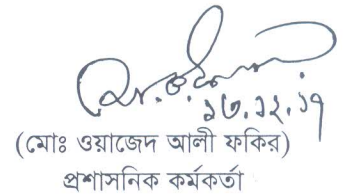 ১৩.১২.১৭
(মোঃ ওয়াজেদ আলী ফকির)
প্রশাসনিক কর্মকর্তা